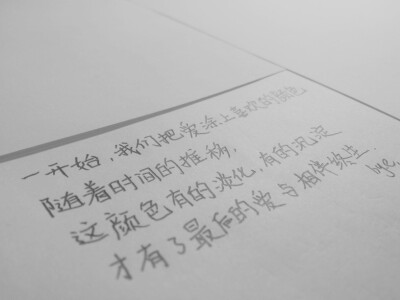 一开始，我们把爱涂上喜欢的颜色
随着时间的推移，
这颜色有的淡化，有的沉淀
才有了最后的爱与相伴终生.
bye.